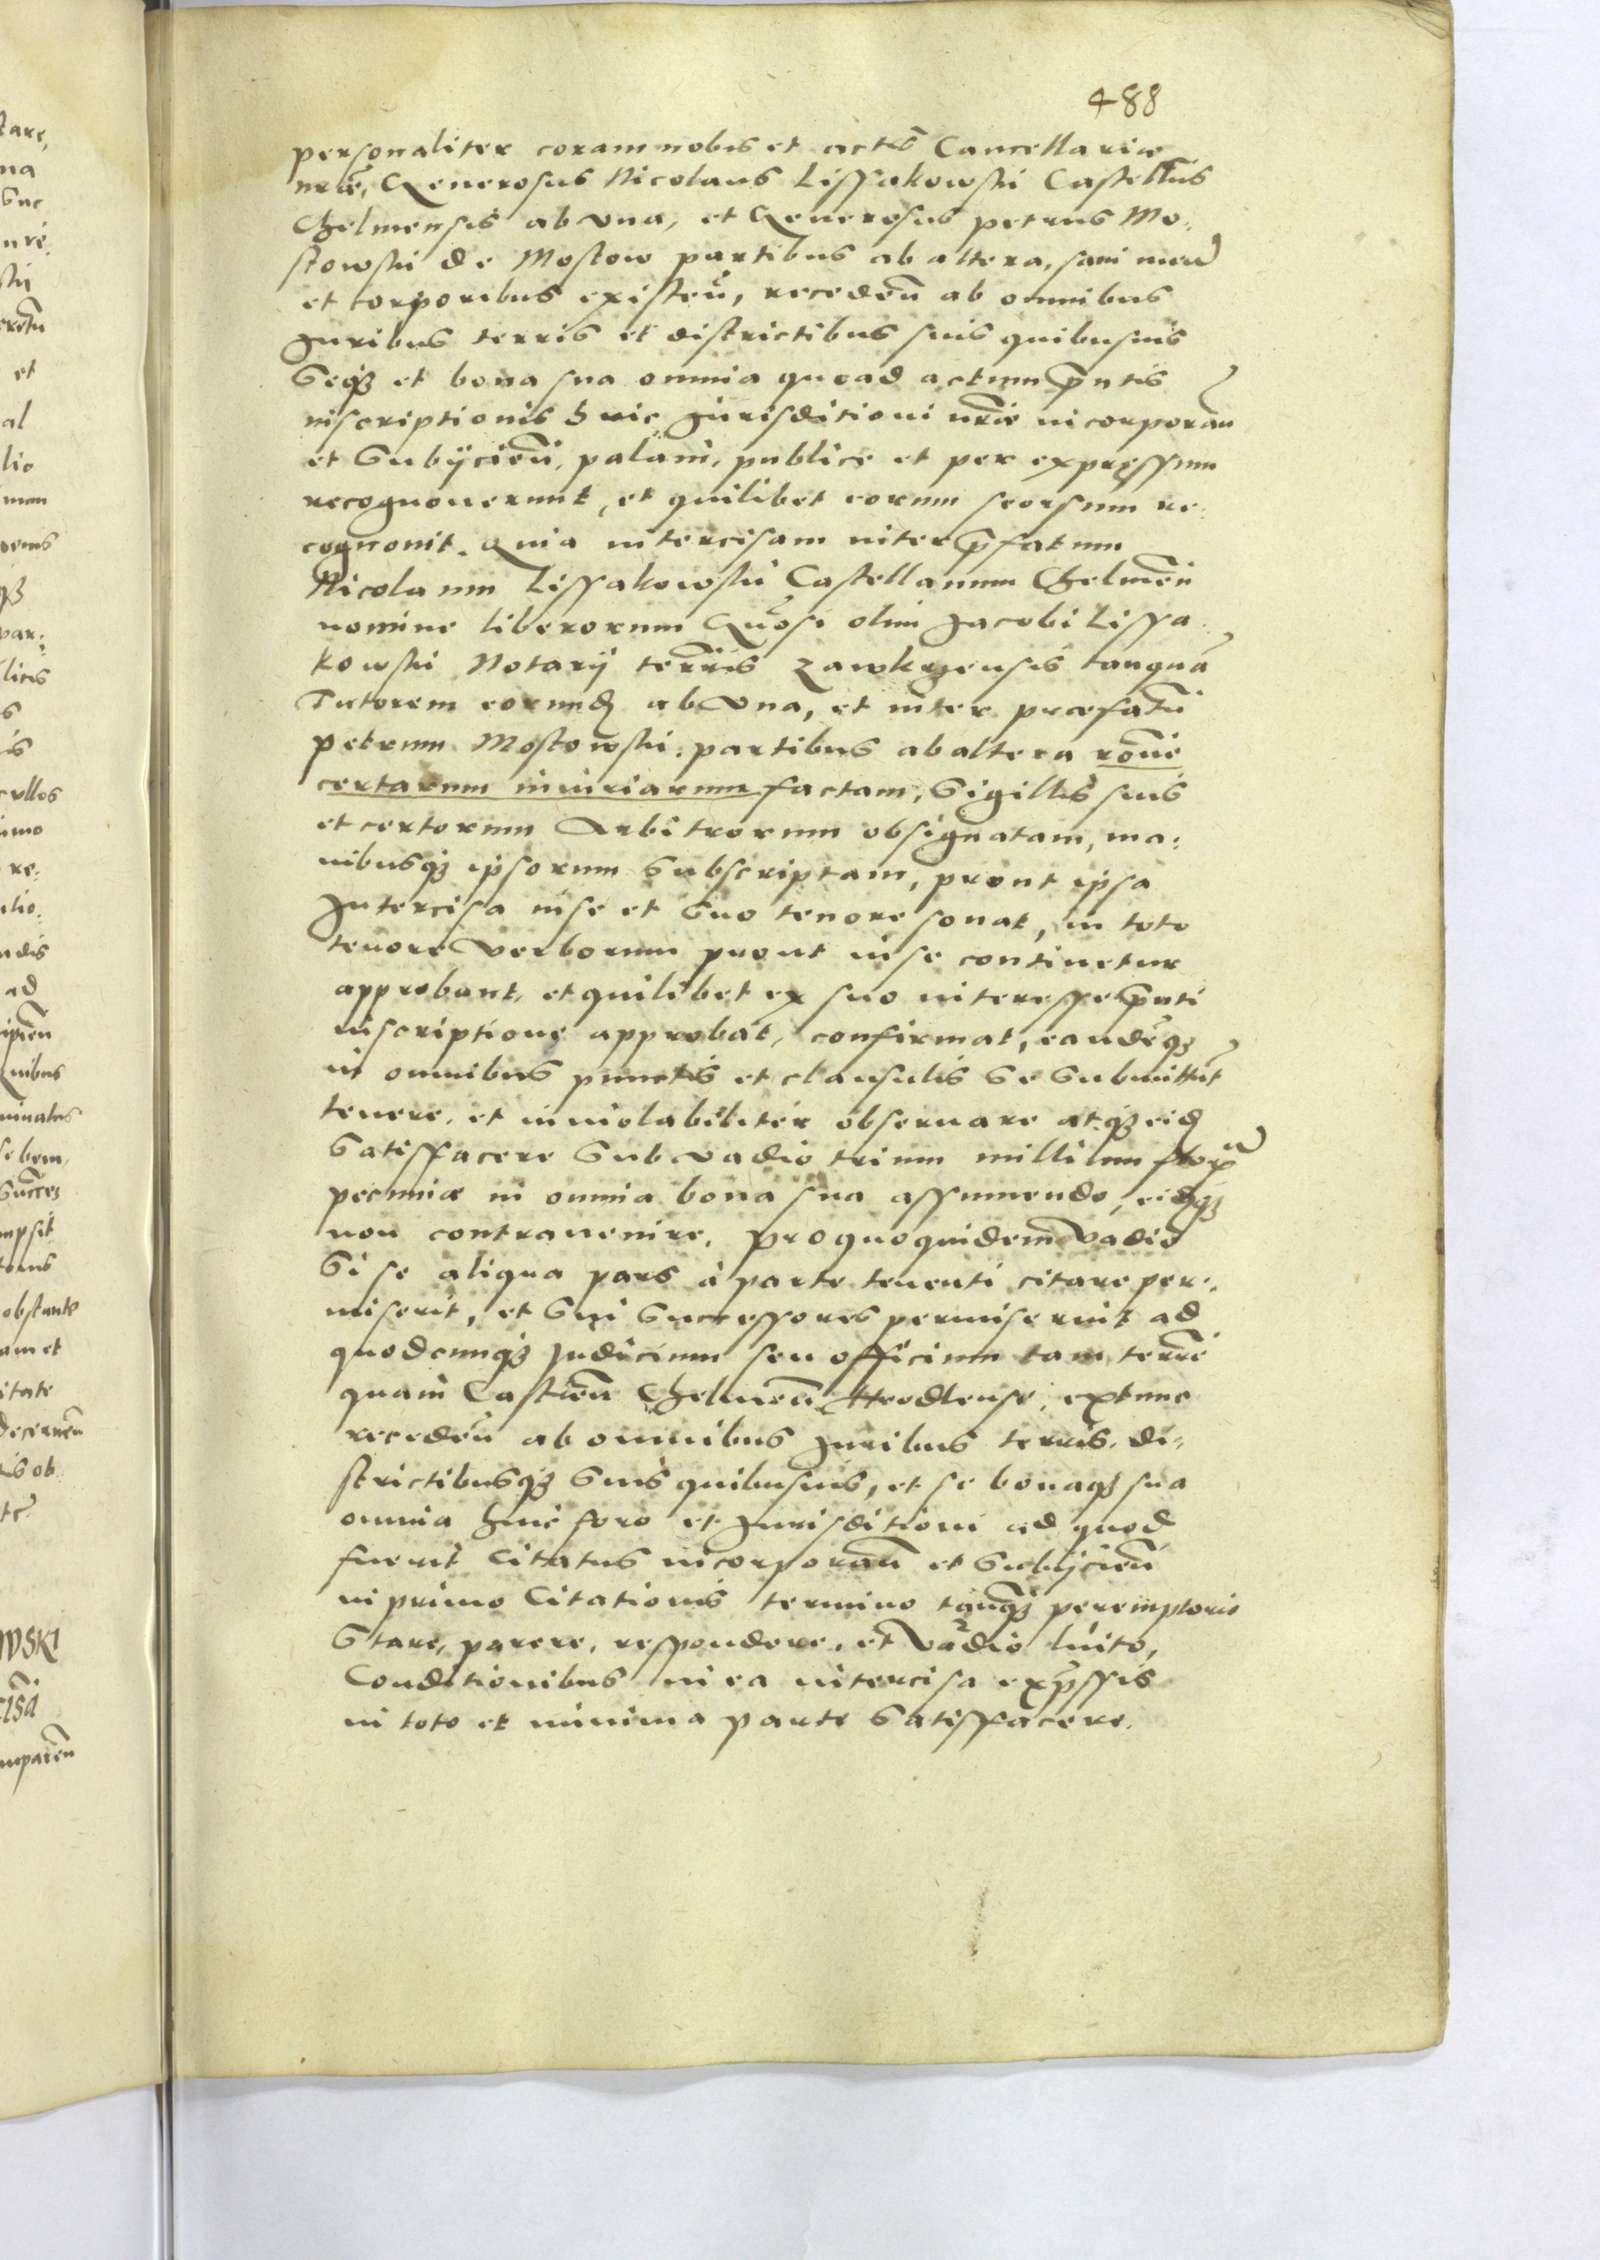 488
personaliter coram nobis et actis Cancellariæ
nrae, Generosus Nicolaus Lissakowski Castellus
Chelmensis ab vna, et Generosus petrus Mo-
stowski de Mostow partibus ab altera, sani mente
et corporibus existeñ, recedeñ ab omnibus
Juribus terris et districtibus suis quibusuis
Seqz et bona sua omnia quoad actum pntis
inscriptionis huic Jurisditioni nrae incorporañ
et Subijcieñ, palam, publice et per expressum
recognouerunt, et quilibet eorum seorsum re-
cognouit. Quia intercisam inter pfatum
Nicolaum Lissakowski Castellanum Chelmeñ
nomine liberorum Gnosi olim Jacobi Lissa-
kowski Notarij terris Zawkrzensis tanquã
Tutorem eorund ab Vna, et inter præfatũ
petrum Mostowski partibus ab altera rõne
certarum iniuriarum factam, Sigillis suis
et certorum Arbitrorum obsignatam, ma-
nibusqz ipsorum Subscriptam, prout ipsa
Intercisa in se et Suo tenore sonat, in toto
tenore Verborum prout in se continetur
approbant, et quilibet ex suo interesse pnti
inscriptione approbat, confirmat, eandeqz
in omnibus punctis et clausulis Se Submittũt
tenere, et inuiolabiliter obseruare atqz eid
Satisfacere Sub vadio trium millium flor
pecuniæ in omnia bona sua assumendo, eidqz
non contrauenire, pro quo quidem Vadio
Si se aliqua pars à parte tenenti citare per-
miserit, et Sui Successores permiserint ad
quodcunqz Judicium seu officium tam terrẽ
quam Castreñ Chelmeñ Hrodlense, extunc
recedeñ ab omnibus Juribus terris, di-
strictibusqz Suis quibusuis, et se bonaqz sua
omnia huic foro et Jurisditioni ad quod
fuerit Citatus incorporañ et Subijcieñ
in primo Citationis termino tanqz peremptorio
Stare, parere, respondere, et Vadio luito,
Conditionibus in ea intercisa expssis
in toto et minima parte Satisfacere.